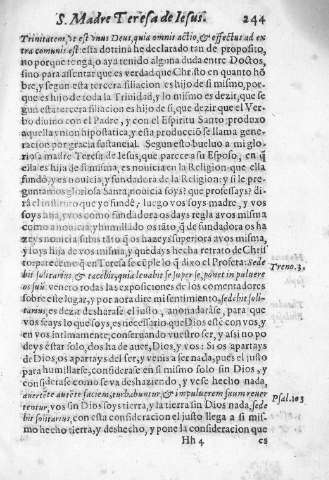 S. Madre Teresa de Iesus. 244
Trinitatem, vt est vnus Deus, quia omnis actio, & effectus ad ex
tra comunis est: esta dotrina he declarado tan de proposito,
no porque tenga, o aya tenido alguna duda entre Doctos,
sino para assentar que es verdad que Christo en quanto hõ
bre, y segun esta tercera filiacion es hijo de si mismo, por-
que es hijo de toda la Trinidad, y lo mismo es dezir, que se
gun esta tercera filiacion es hijo de si, que dezir que el Ver-
bo diuino con el Padre, y con el Espiritu Santo produxo
aquella vnion hipostatica, y esta producciõ se llama gene-
racion por gracia sustancial. Segun esto bueluo a mi glo-
riosa madre Teresa de Iesus, que parece a su Esposo, en q̃
ella es hija de si misma, es nouicia en la Religion que ella
fundò, y es nouicia, y fundadora de la Religion: y si le pre-
guntamos gloriosa Santa, nouicia soys? que professays? di-
rà el instituto que yo fundè, luego vos soys madre, y vos
soys ana, y vos como fundadora os days regla a vos misma
como a nouicia; y humillado os tãto, q̃ de fundadora os ha
zeys nouicia subis tãto q̃ os hazeys superiora a vos misma,
y soys hija de vos misma, y quedays hecha retrato de Christ
to: parece me q̃ en Teresa se cũple lo q̃ dixo el Profeta: Sede
bit solitarius, & tacebit, quia leuabit se super se, ponet in puluere Treno. 3.
os suũ. venero todas las exposiciones de los comentadores
sobre este lugar, y por aora dire mi sentimiento, sedebit soli-
tarius, es dezir desharase el justo, anonadarase, para que
vos seays lo que soys, es necessario que Dios estè con vos, y
en vos intimamente, conseruando vuestro ser, y assi no po
deys estar solo, dos ha de auer, Dios, y vos: Si os apartays
de Dios, os apartays del ser, y venis a ser nada, pues el justo
para humillarse, considerase en si mismo solo sin Dios, y
considerase como se va deshaziendo, y vese hecho nada,
auertẽte autẽ te faciem, turbabuntur, & in puluerem suum reuer Psal. 103
tentur, vos sin Dios soys tierra, y la tierra sin Dios nada, sede
bit solitarius, con esta consideracion el justo llega a si mis-
mo hecho tierra, y deshecho, y pone la consideracion que
Hh 4 es